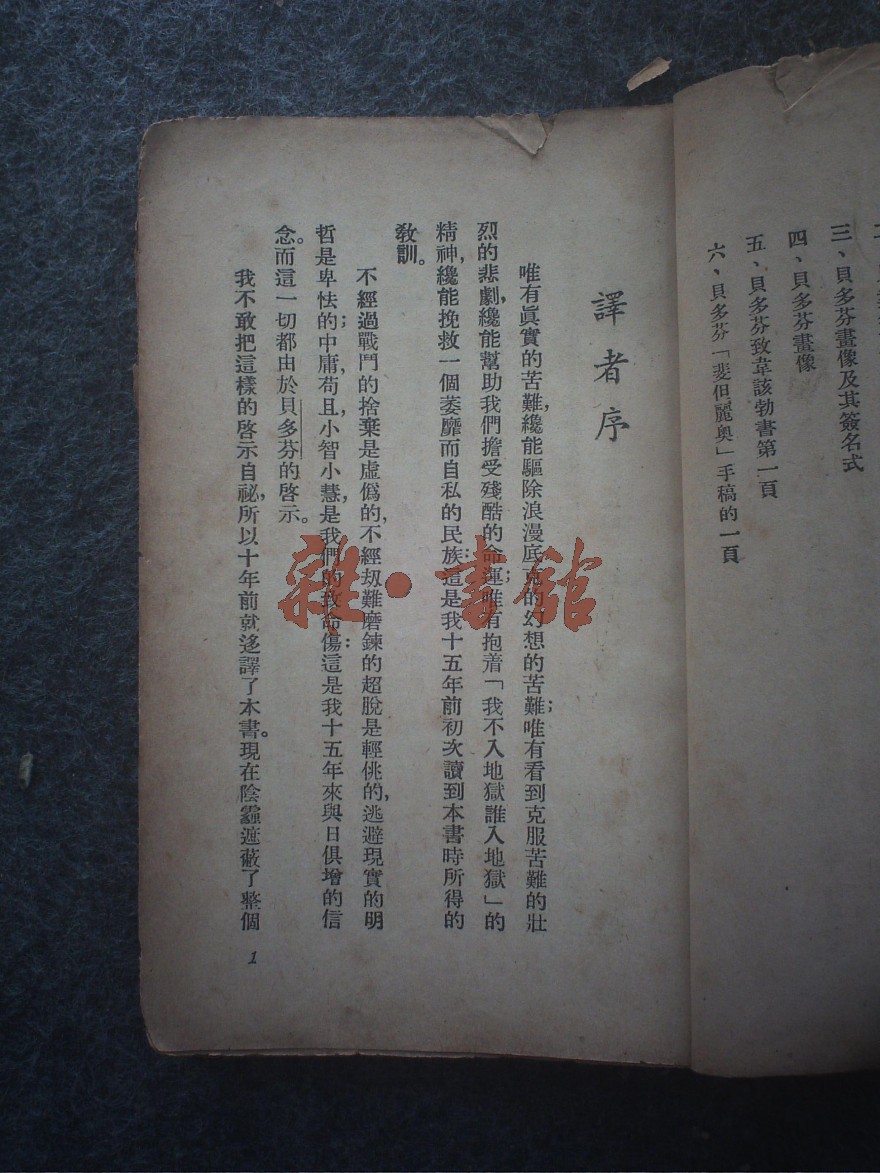 三、貝多芬畫像及其簽名式
四、貝多芬畫像
五、貝多芬致韋該勃書第一頁
六、貝多芬「斐但麗奥」手稿的一頁
譯者序
唯有眞實的苦難，纔能驅除浪漫底克的幻想的苦難；唯有看到克服苦難的壯
烈的悲劇，纔能幫助我們擔受殘酷的命運；唯有抱着「我不入地獄誰入地獄」的
精神，纔能挽救一個萎靡而自私的民族：這是我十五年前初次讀到本書時所得的
敎訓。
不經過戰鬥的捨棄是虛僞的，不經刼難磨鍊的超脫是輕佻的，逃避現實的明
哲是卑怯的；中庸，苟且，小智小慧，是我們的致命傷：這是我十五年來與日俱增的信
念。而這一切都由於貝多芬的啓示。
我不敢把這樣的啓示自祕，所以十年前就迻譯了本書。現在陰霾遮蔽了整個
1
雜·書館